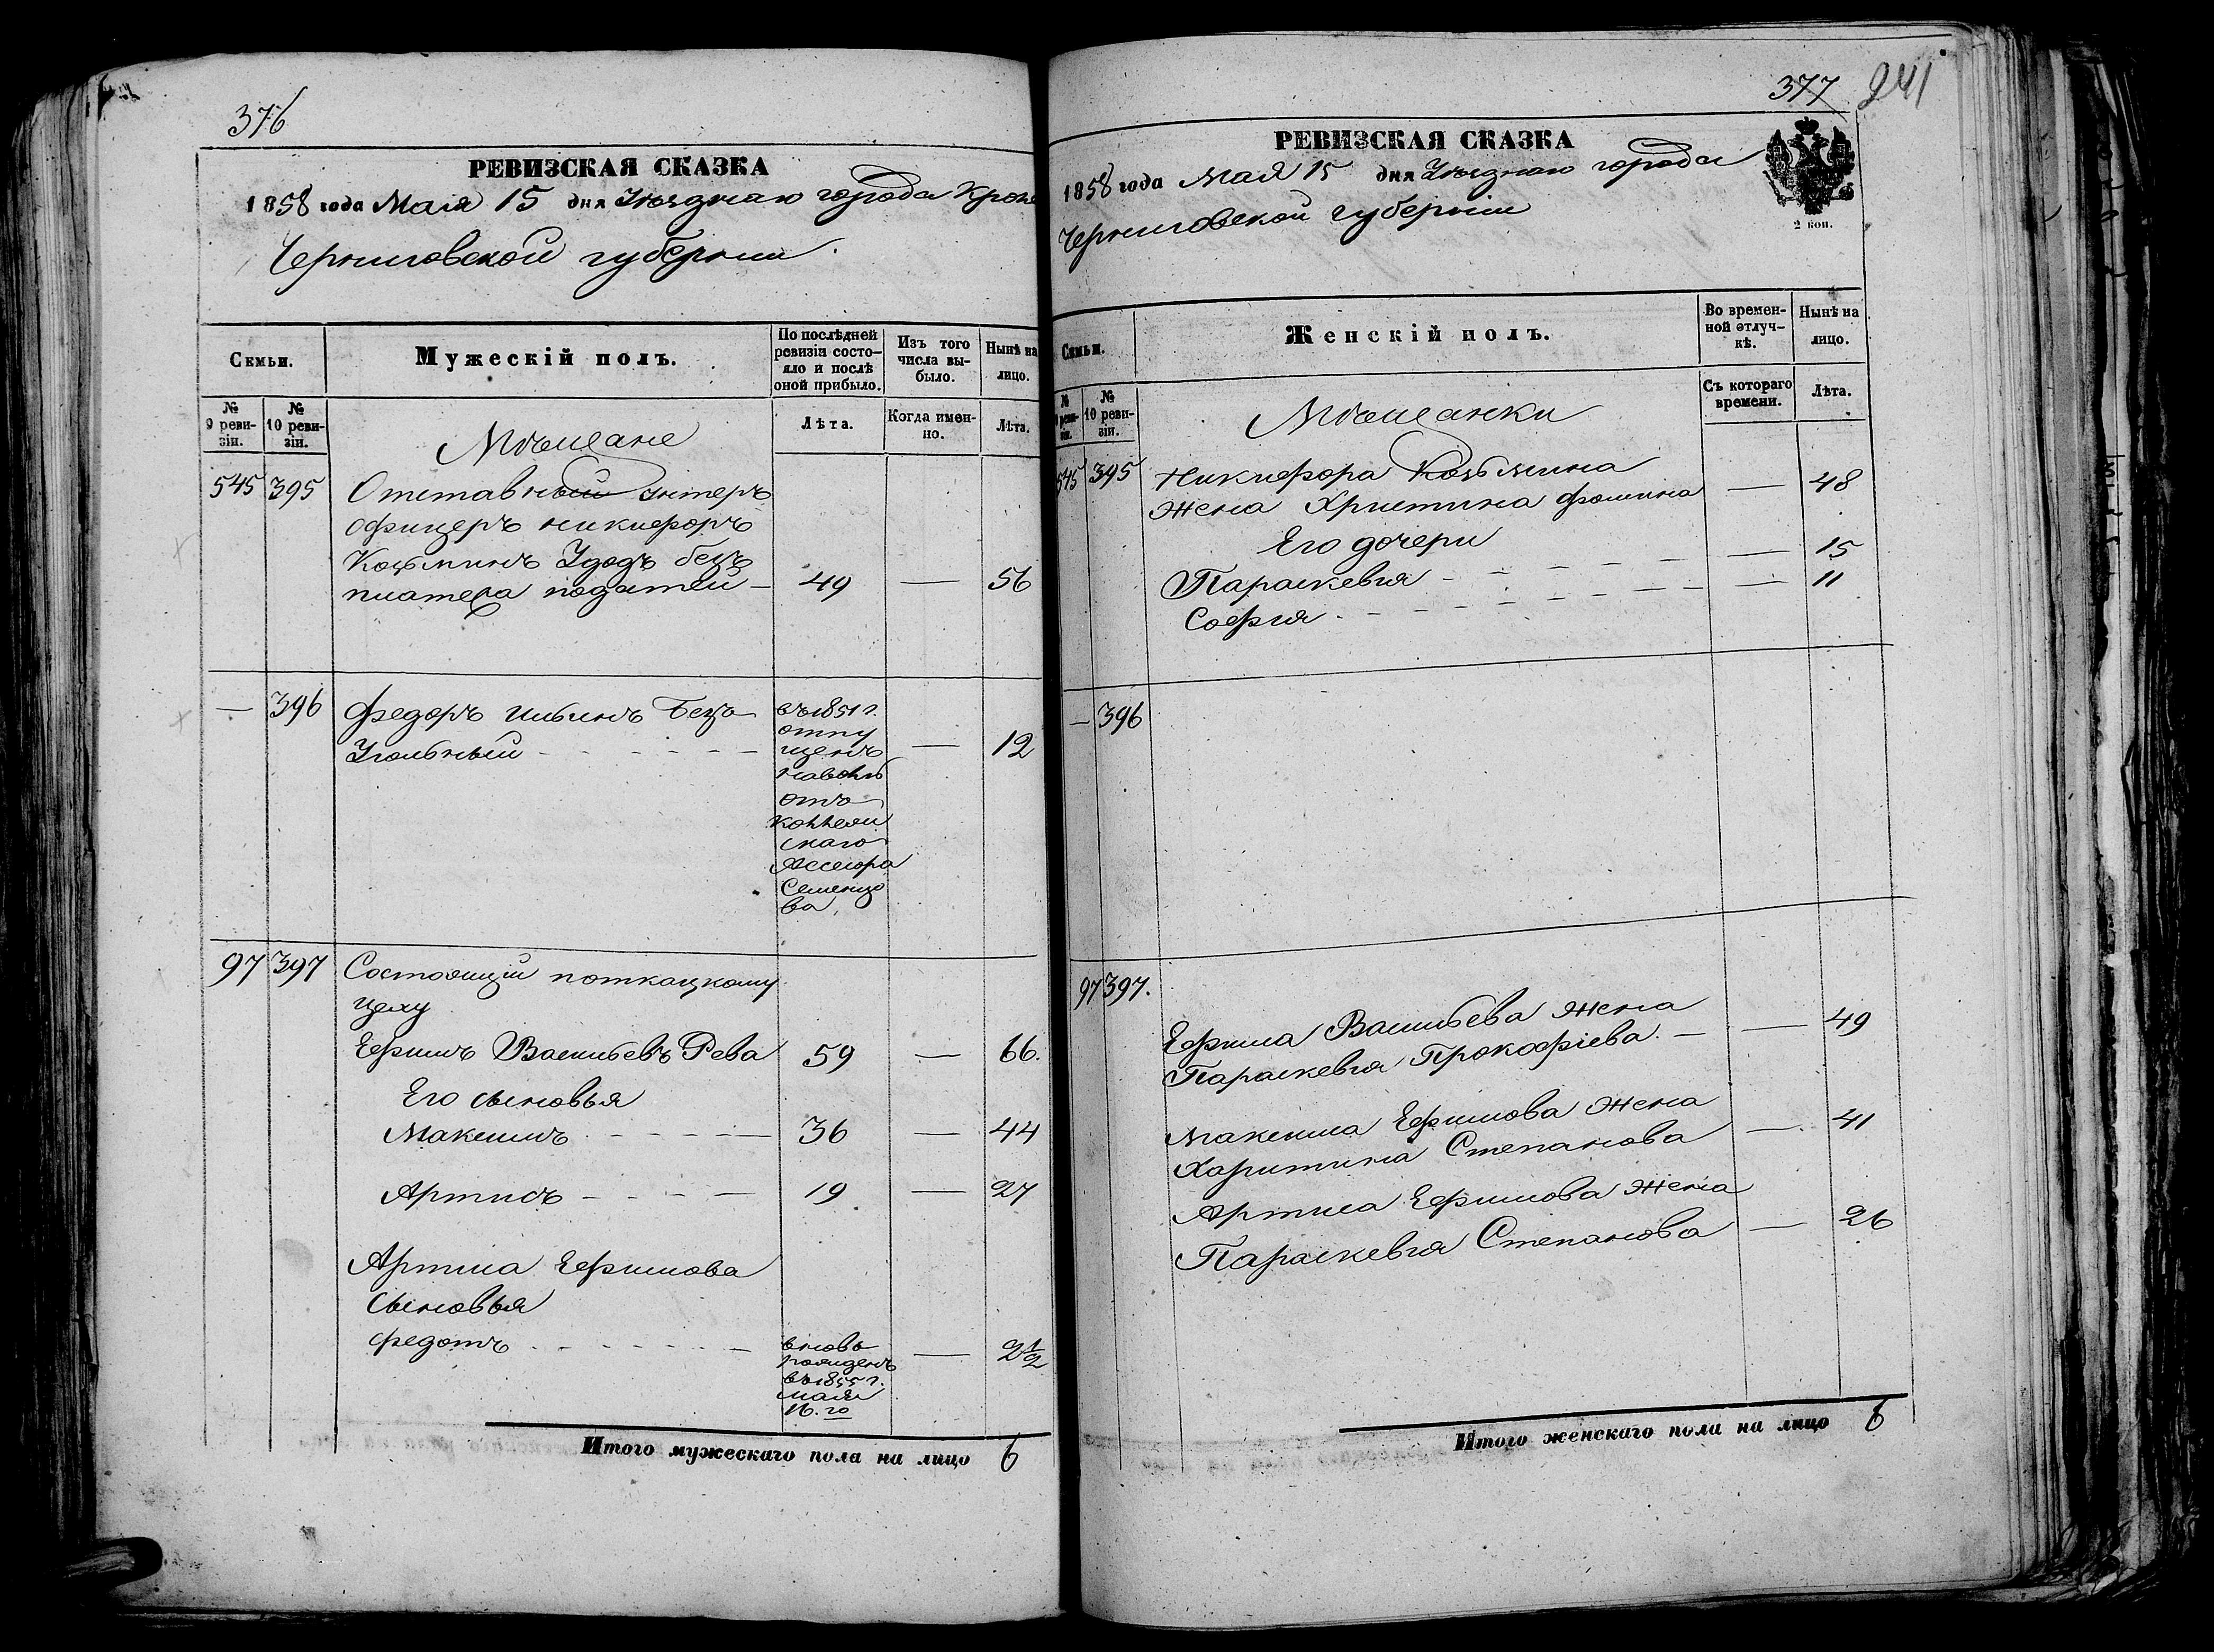 376
РЕВИЗСКАЯ СКАЗКА
1858 года Мая 15 дня Уѣзднаго города Кроле
Черниговской губерніи
Семьи.
Мужескій полъ.
По послѣдней ревизіи состо-
яло и послѣ
оной прибыло.
Изъ того
числа вы-
было.
Нынѣ на
лицо.
№
9 реви-
зіи.
№
10 реви-
зіи.
Мѣщане
Лѣта.
Когда имен-
но.
Лѣта.
545 395 Отставный унтеръ
офицеръ Никифоръ
Козьминъ Удодъ безъ
платежа податей 49 — 56
— 396 Федоръ Ильинъ Безъ
Угольный — 12
въ 1851 г.
отпу
щенъ
наволю
отъ
Коллежи
скаго
Ассесора
Семенцо
ва
97 397 Состоящій поткацкому
цеху
Ефимъ Васильевъ Рева 59 — 66.
Его сыновья
Максимъ 36 — 44
Артимъ 19 — 27
Артима Ефимова
сыновья
Федотъ — 2 1/2
вновь
рожденъ
въ 1855 г.
мая
16.го
Итого мужескаго пола на лицо 6
377 241
РЕВИЗСКАЯ СКАЗКА
1858 года Мая 15 дня Уѣзднаго города
Черниговской губерніи
2 коп.
Семьи.
Женскій полъ.
Во времен-
ной отлуч-
кѣ.
Нынѣ на
лицо.
№
9 реви-
зіи.
№
10 реви-
зіи.
Мѣщанки
Съ котораго
времени.
Лѣта.
545 395 Никифора Козьмина
жена Христина Фомина — 48
Его дочери
Параскевія — 15
Софія — 11
— 396
97 397.
Ефима Васильева жена
Параскевія Прокофіева — 49
Максима Ефимова жена
Харитина Степанова — 41
Артима Ефимова жена
Параскевія Степанова — 26
Итого женскаго пола на лицо 6